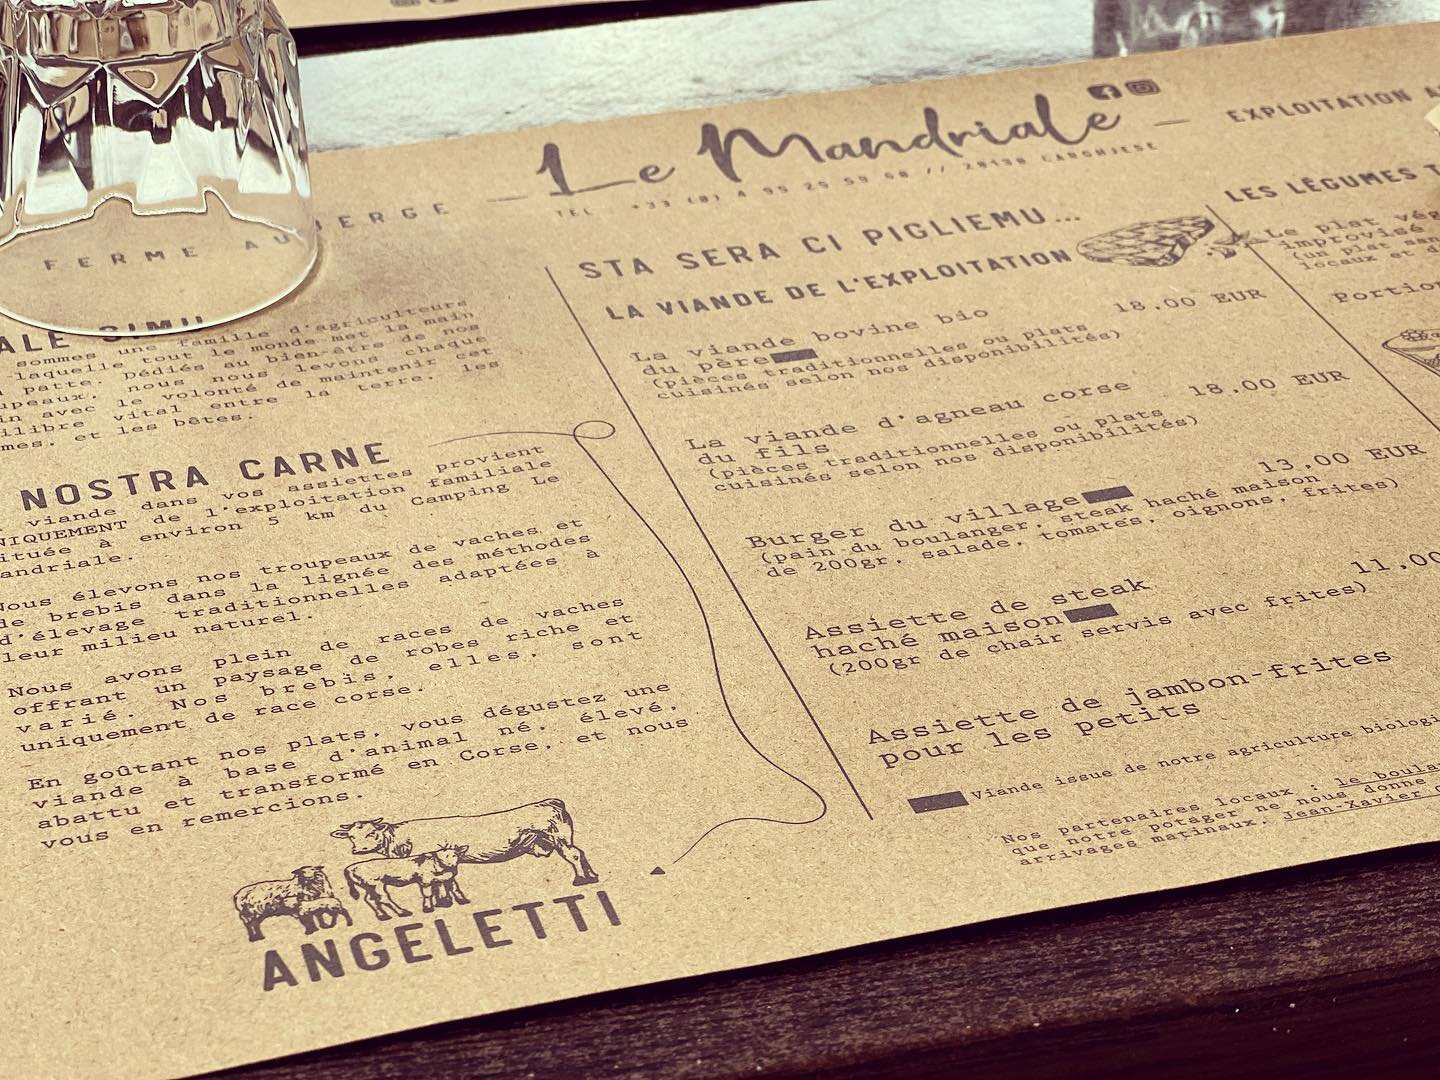 FERME AUBERGE
Le Mandriale
TEL : +33 (0) 4 95 25 59 68 // 20130 CARGHJESE
EXPLOITATION
sommes une famille d'agriculteurs
laquelle tout le monde met la main
patte. Dédiés au bien-être de nos
nous nous levons chaque
avec le volonté de maintenir cet
vital entre la terre, les
et les bêtes.
NOSTRA CARNE
viande dans vos assiettes provient
UNIQUEMENT de l'exploitation familiale
située à environ 5 km du Camping Le
Mandriale.
Nous élevons nos troupeaux de vaches et
de brebis dans la lignée des méthodes
d'élevage traditionnelles adaptées à
leur milieu naturel.
Nous avons plein de races de vaches
offrant un paysage de robes riche et
varié. Nos brebis, elles, sont
uniquement de race corse.
En goûtant nos plats, vous dégustez une
viande à base d'animal né, élevé,
abattu et transformé en Corse, et nous
vous en remercions.
ANGELETTI
STA SERA CI PIGLIEMU...
LA VIANDE DE L'EXPLOITATION
La viande bovine bio 18,00 EUR
du père
(pièces traditionnelles ou plats
cuisinés selon nos disponibilités)
La viande d'agneau corse 18,00 EUR
du fils
(pièces traditionnelles ou plats
cuisinés selon nos disponibilités)
Burger du village 13,00 EUR
(pain du boulanger, steak haché maison
de 200gr, salade, tomates, oignons, frites)
Assiette de steak 11,00
haché maison
(200gr de chair servis avec frites)
Assiette de jambon-frites
pour les petits
Viande issue de notre agriculture
Nos partenaires locaux : le
que notre potager ne nous donne
arrivages matinaux, Jean-Xavier
LES LÉGUMES
Le plat
improvisé
(un plat
locaux et